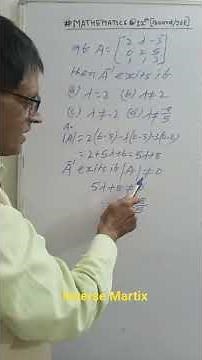 #MATHEMATICS@12th(Board/JEE)
A = [2 λ -3
0 2 5
1 1 3]
then A⁻¹ exits if
(a) λ = 2 (b) λ ≠ 2
|A| = 2(6-5)-λ(0-5)-3(0-2)
= 2+5λ+6 = 5λ+8
A⁻¹ exits if |A| ≠ 0
5λ+8 ≠
Inverse Martix